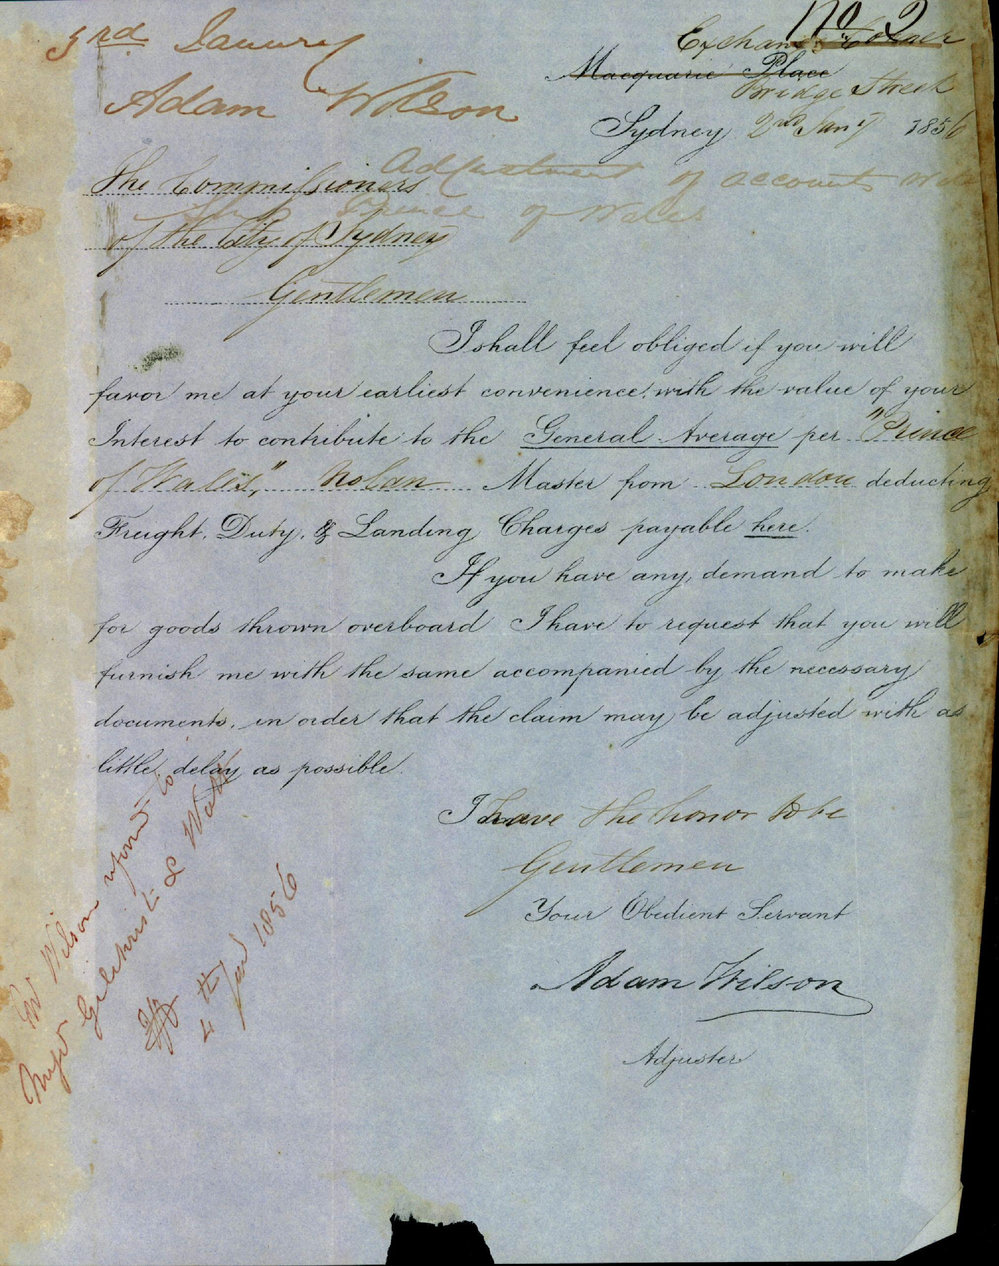 No 2
3rd January
Adam Wilson
Exchange Corner
Macquarie Place
Bridge Street
Sydney 2nd Jany 1856
Adjustment of accounts
Ship Prince of Wales
The Commissioners
of the City of Sydney
Gentlemen
I shall feel obliged if you will
favor me at your earliest convenience, with the value of your
Interest to contribute to the General Average per "Prince
of Wales," Nolan Master from London deducting
Freight, Duty, & Landing Charges payable here.
If you have any demand to make
for goods thrown overboard I have to request that you will
furnish me with the same accompanied by the necessary
documents, in order that the claim may be adjusted with as
little delay as possible.
I have the honor to be
Gentlemen
Your Obedient Servant
Adam Wilson
Adjuster
Mr Wilson referred to
Messrs Gilchrist & Watt
4th Jan 1856